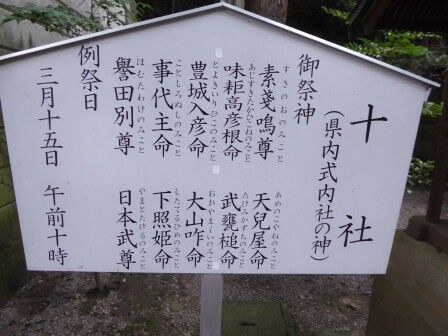 十社
(県内式内社の神)
御祭神
素戔嗚尊 天兒屋命
すさのおのみこと あめのこやねのみこと
味耜高彦根命 武甕槌命
あじすきたかひこねのみこと たけみかずちのみこと
豊城入彦命 大山咋命
とよきいりひこのみこと おおやまくいのみこと
事代主命 下照姫命
ことしろぬしのみこと したてるひめのみこと
譽田別尊 日本武尊
ほむたわけのみこと やまとたけるのみこと
例祭日
三月十五日 午前十時